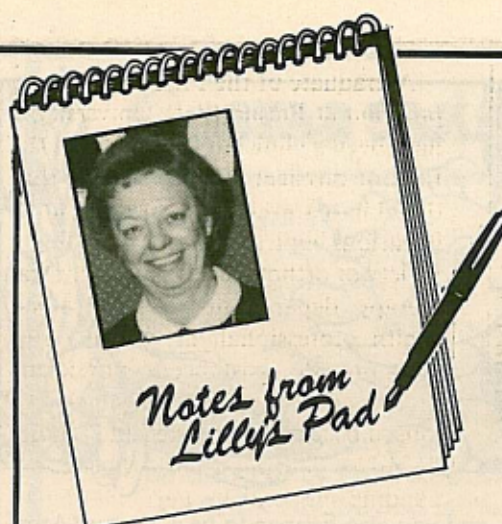 Notes from
Lilly's Pad